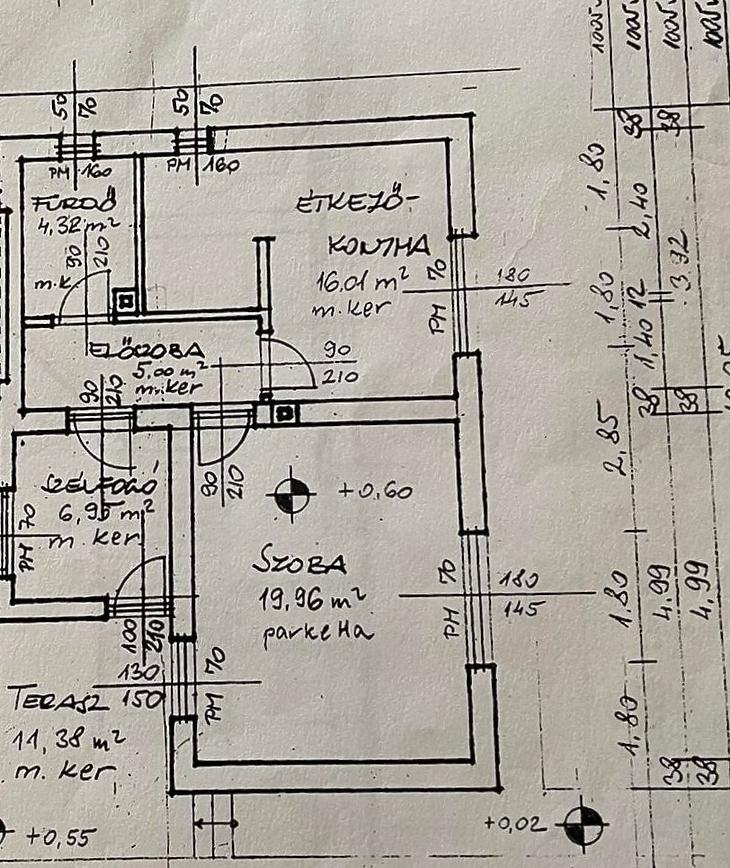 1005
1005
1005
1005
50 70
50 70
38
38
PM 160
PM 160
1,80
FÜRDŐ
4,32 m²
ÉTKEZŐ-
KONYHA
16,01 m²
m.ker
2,40
90
210
m.k
PM 70
180
145
3.92
1,80
12
1,40
ELŐSZOBA
5,00 m²
m.ker
90
210
90
210
38
38
90
210
+0,60
2,85
SZÉLFOGÓ
6,95 m²
m. ker
PM 70
SZOBA
19,96 m²
parketta
PM 70
180
145
1,80
4,99
4,99
100
210
130
150
PM 70
TERASZ
11,38 m²
m. ker
1,80
38
38
+0,55
+0,02